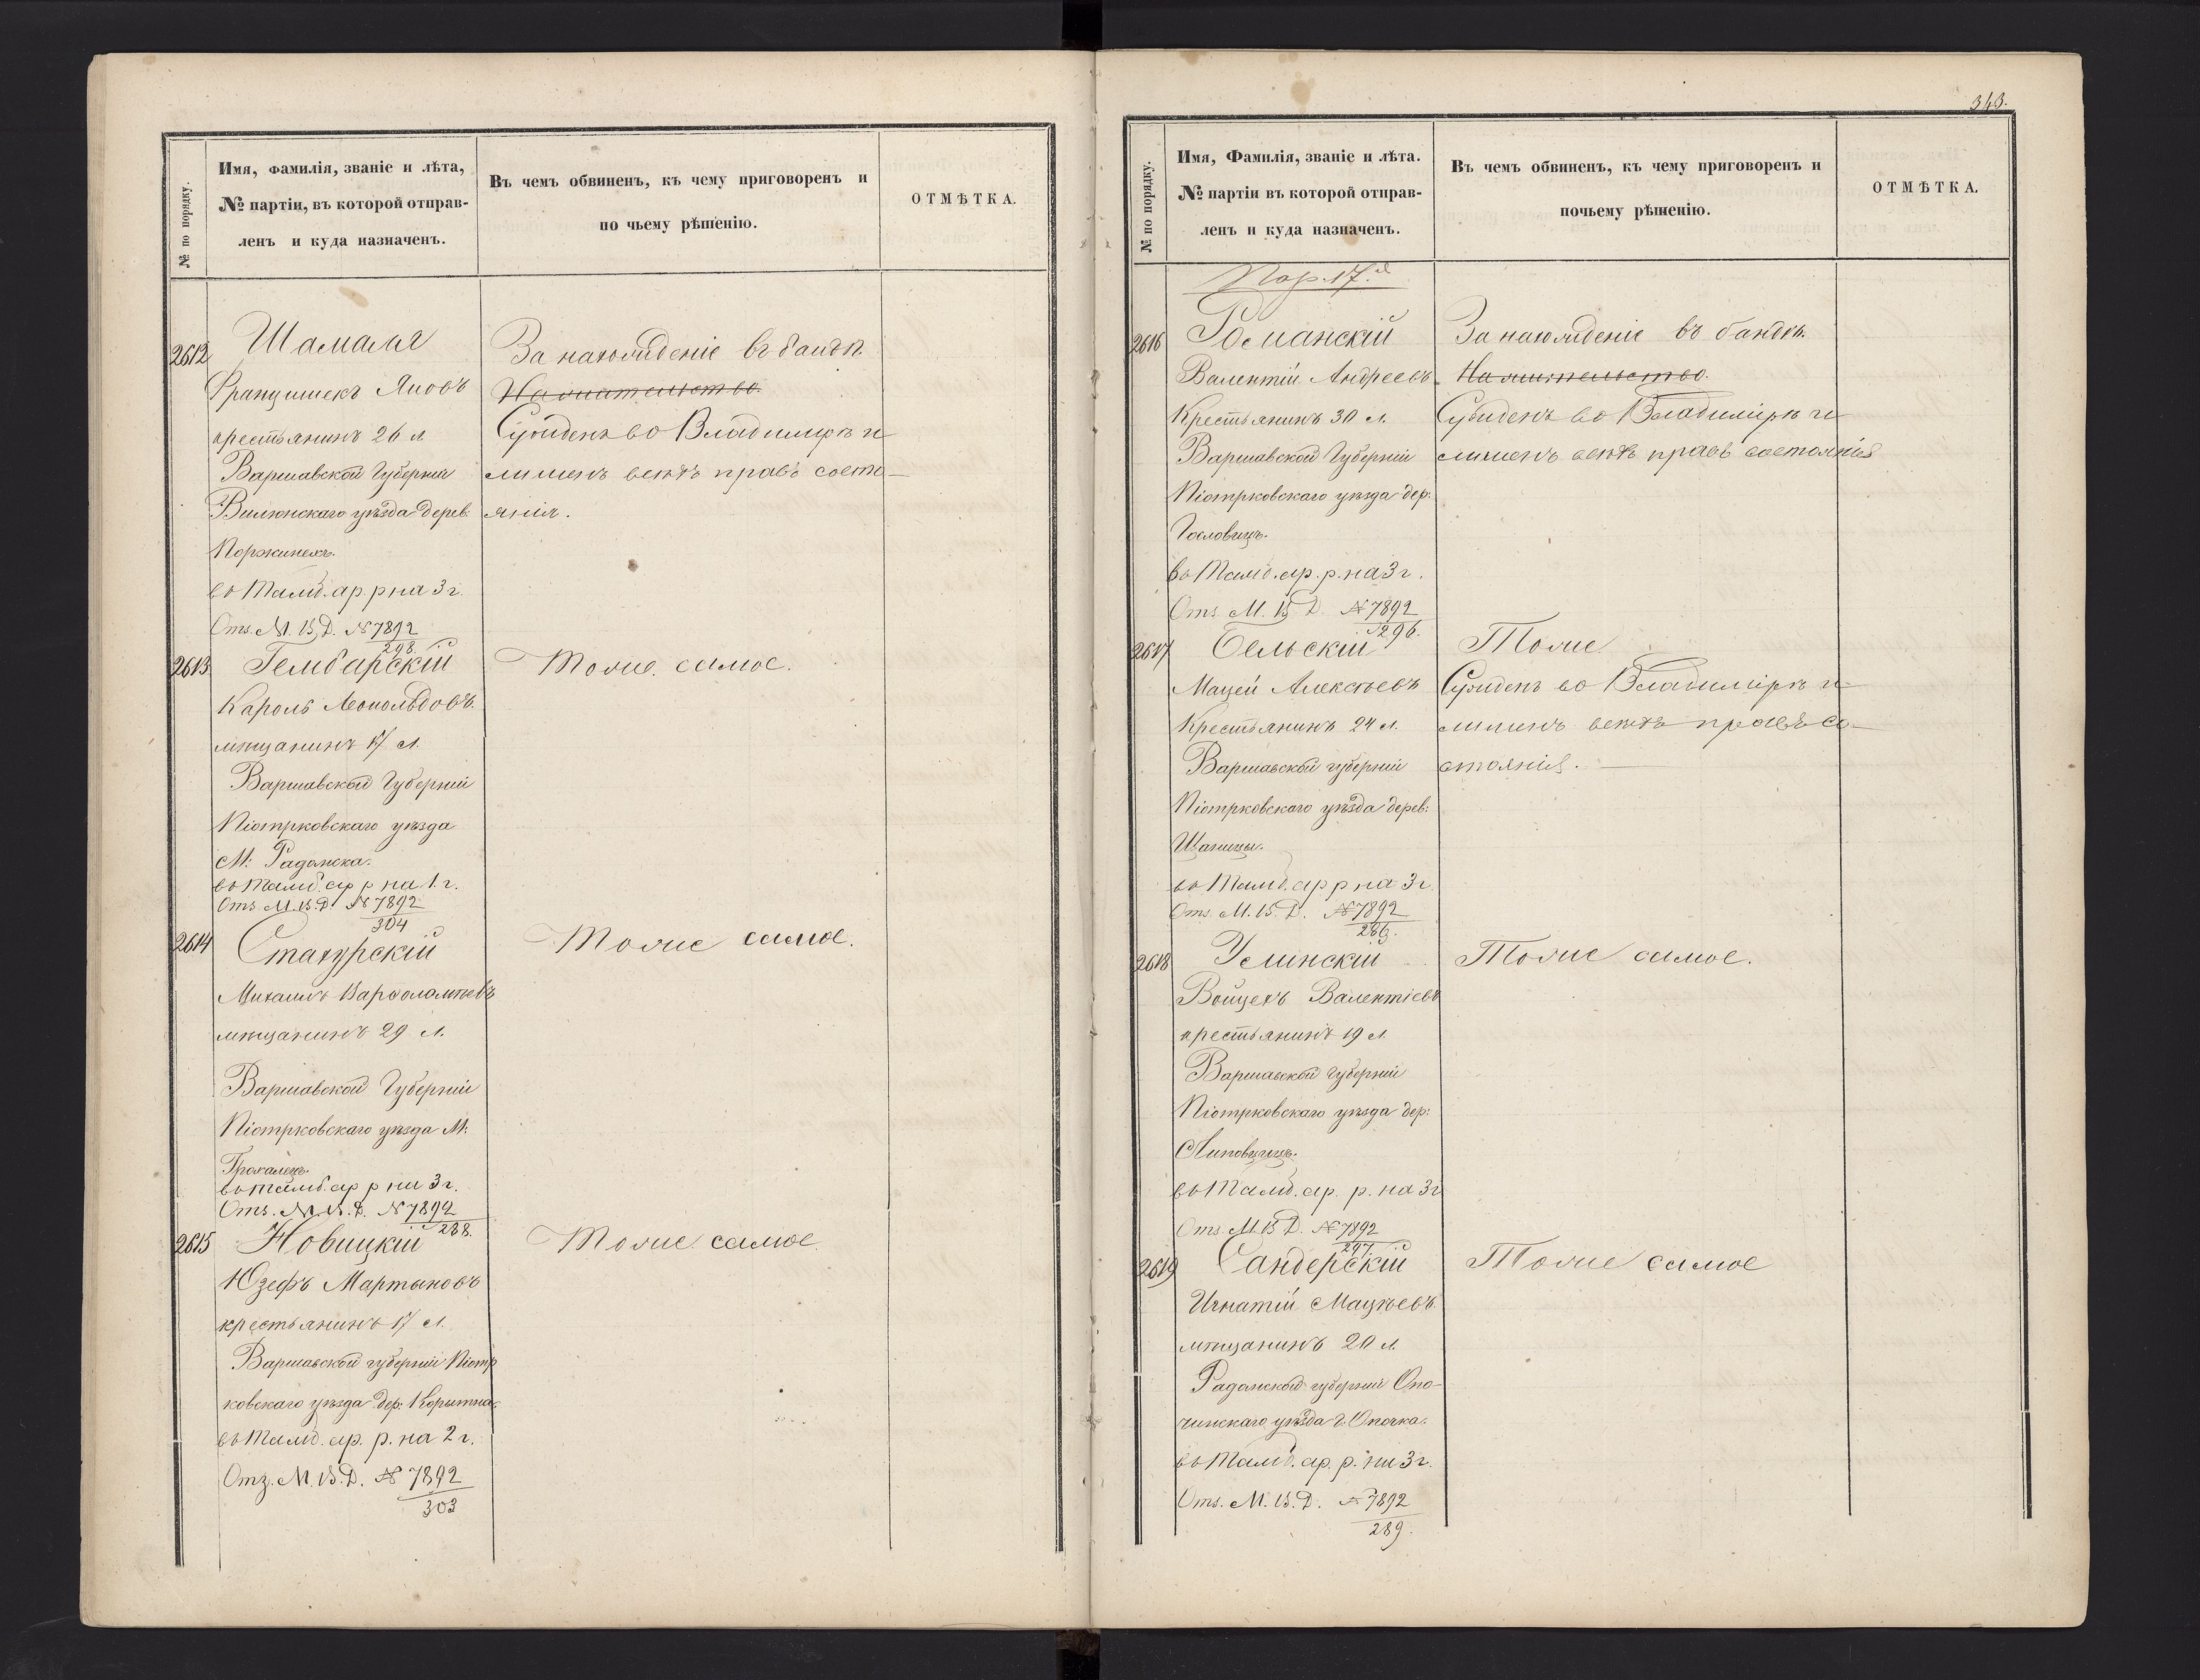 № по порядку.
Имя, фамилія, званіе и лѣта,
№ партіи, въ которой отправ-
ленъ и куда назначенъ.
Въ чемъ обвиненъ, къ чему приговоренъ и
по чьему рѣшенію.
ОТМѢТКА.
2612
Шамала
Францишекъ Яновъ
крестьянинъ 26 л.
Варшавской Губерніи
Вилюнскаго уѣзда дерев.
во Тамб. ар. р на 3 г.
Отз. М. В. Д. № 7892
298
За нахожденіе въ бандѣ.
На жительство.
Сужденъ во Владимірѣ и
лишенъ всѣхъ правъ состо-
янія.
2613
Гембарскій
Кароль Леопольдовъ.
мѣщанинъ 17 л.
Варшавской Губерніи
Піотрковскаго уѣзда
М: Радомска.
во Тамб. ар р на 1. г.
Отз. М. В. Д. № 7892
304
Тоже. самое.
2614
Стахурскій
Михаилъ Варфоломѣевъ
мѣщанинъ 29 л.
Варшавской Губерніи
Піотрковскаго уѣзда М:
во Тамб. ар р на 3 г.
Отз. М. В. Д. № 7892
288.
Тоже самое.
2615
Новицкій
Юзефъ Мартыновъ
крестьянинъ 17 л.
Варшавской губерніи Піотр
ковскаго уѣзда дер: Корытна.
въ Тамб. ар. р. на 2 г.
Отз. М. В. Д. № 7892
303
Тоже самое
343.
№ по порядку.
Имя, Фамилія, званіе и лѣта.
№ партіи въ которой отправ-
ленъ и куда назначенъ.
Въ чемъ обвиненъ, къ чему приговоренъ и
почьему рѣшенію.
ОТМѢТКА.
Пар. 17.я
2616
Романскій
Валентій Андреевъ
Крестьянинъ 30 л.
Варшавской Губерніи
Піотрковскаго уѣзда дер:
во Тамб. ар. р. на 3 г.
Отз. М. В. Д. № 7892
296.
За нахожденіе въ бандѣ.
На жительство.
Сужденъ во Владимірѣ и
лишенъ всѣхъ правъ состоянія
2617
Бельскій
Мацей Алексѣевъ
Крестьянинъ 24 л.
Варшавской губерніи
Піотрковскаго уѣзда дерев:
во Тамб. ар р на 3 г.
Отз. М. В. Д. № 7892
286.
Тоже
Сужденъ во Владимірѣ и
лишенъ всѣхъ правъ со-
стоянія.
2618
Уминскій
Войцехъ Валентіевъ
крестьянинъ 19 л.
Варшавской Губерніи
Піотрковскаго уѣзда дер:
во Тамб. ар. р. на 3 г
Отз. М. В. Д. № 7892
297.
Тоже самое.
2619
Сандерскій
Игнатій Мацѣевъ.
мѣщанинъ 20 л.
Радомской губерніи Опо-
чинскаго уѣзда г. Опочка.
во Тамб. ар. р. на 3 г.
Отз. М. В. Д. № 7892
289.
Тоже самое